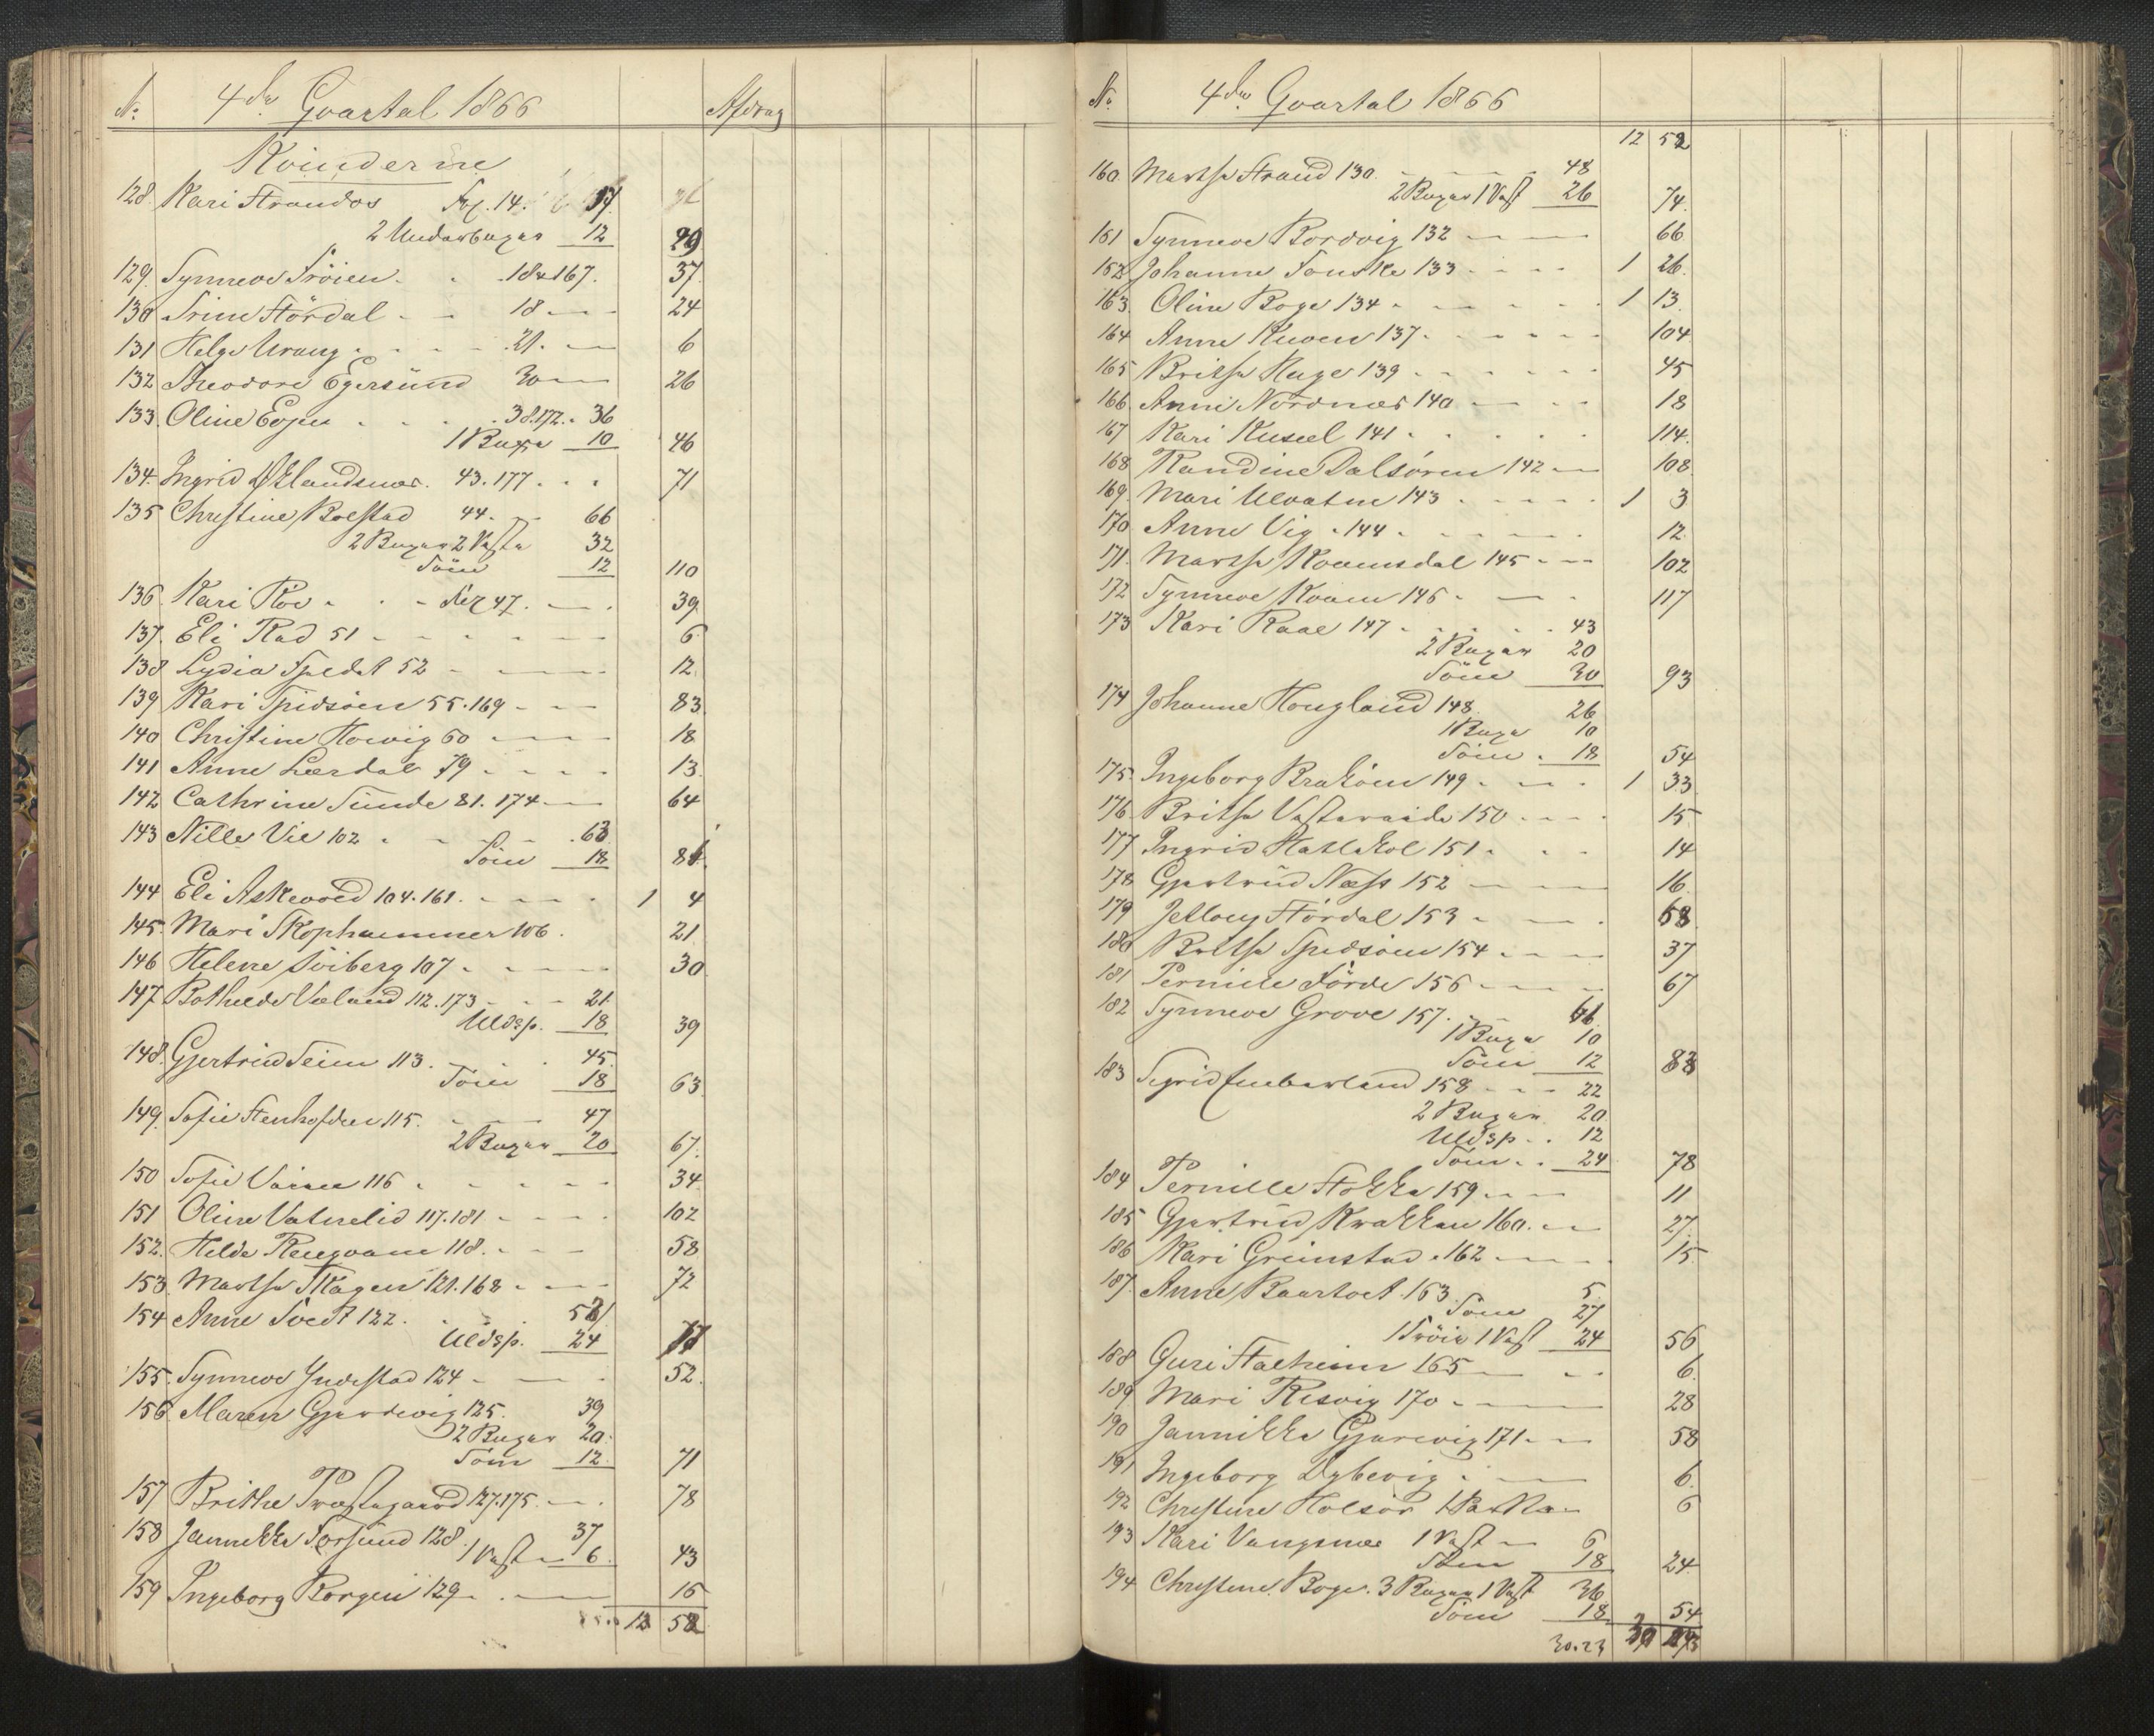 No. 4de Qvartal 1866 Afdrag
Kvinderne
128. Kari Strandos 14.
2 Underbuxer 12 29
129. Synneve Trôien 18 & 167. 37
130 Trine Stôrdal 18 24
131 Helge Urang 21. 6
132 Theodore Egersünd 30 26
133. Oline Evjen 38.172. 36
1 Buxe 10 46
134. Ingrid Öklandsnæs. 43.177 71
135 Christine Bolstad 44. 66
2 Buxer 2 Veste 32
Söm 12 110
136. Kari Röe 47. 39
137. Eli Rad 51 6
138 Lydia 52 12
139 Kari Spidsöen 55.169 83
140 Christine Howig 60 18
141 Anne Lærdal 79 13
142 Cathrine Sünde 81.174 64
143 Nille Vie 102 63
Söm 18 81
144 Eli Askevold 104.161. 1 4
145. Mari Skophammer 106. 21
146 Helene Sviberg 107 30
147 Bothilde Væland 112.173 21
Uldsp. 18 39
148. Gjertrüd Seim 113. 45
Söm 18 63
149. Sofie 115. 47
2 Buxer 20 67.
150 Sofie 116 34
151 Oline Vatnelid 117.181 102
152. Helde 118. 58
153. Marthe Skagen 121.168 72
154 Anne Tvedt 122.
Uldsp. 24 77
155. Synneve Indestad 124 52.
156. Maren 125. 39
2 Buxer 20
Söm 12 71
157 Brithe Præstegaard 127.175. 78
158 Jannikke 128. 37
1 Vest 6 43
159 Ingeborg Borgen 129 15
12 52
No. 4de Qvartal 1866
12 52
160 Marthe Strand 130. 48
2 Buxer 1 Vest 26 74.
161 Synneve Bordvig 132 66
162 Johanne Tonske 133 1 26.
163. Oline Boge 134 1 13.
164 Anne 137. 104
165 Brithe Hage 139 45
166. Anne Nordnæs 140 18
167 Kari 141 114.
168 Randine Dalsören 142 108
169. Mari Ulvatne 143 1 3
170 Anne Vig 144 12
171. Marthe Kvamsdal 145 102
172 Synneve Kvam 146 117
173 Kari Raae 147 43
2 Buxer 20
Söm 30 93
174 Johanne Hougland 148. 26
1 Buxe 10
Söm 18 54
175. Ingeborg 149 1 33
176. Brithe 150 15
177 Ingrid 151 14
178 Gjertrüd Næss 152 16
179 Stördal 153 58
180 Brithe Spidsöen 154 37
181 Pernille Förde 156 67
182 Synneve Grove 157. 61
1 Buxe 10
Söm 12 83
183 Sigrid Emberland 158 22
2 Buxer 20
Uldsp. 12
Söm 24 78
184 Pernille Stokke 159 11
185 Gjertrüd 160. 27.
186 Kari Grimstad 162 15
187. Anne 163. 5.
Söm 27
1 Tröie 1 Vest 24 56
188 Guri Stalheim 165 6.
189 Mari Risvig 170 28
190 Jannikke 171 58
191 Ingeborg Dybevig 6.
192 Christine Holsör 6
193 Kari Vangsnæs 1 Vest 6
Söm 18 24
194 Christine Boge. 3 Buxer 1 Vest 36
Söm 18 54
30.23